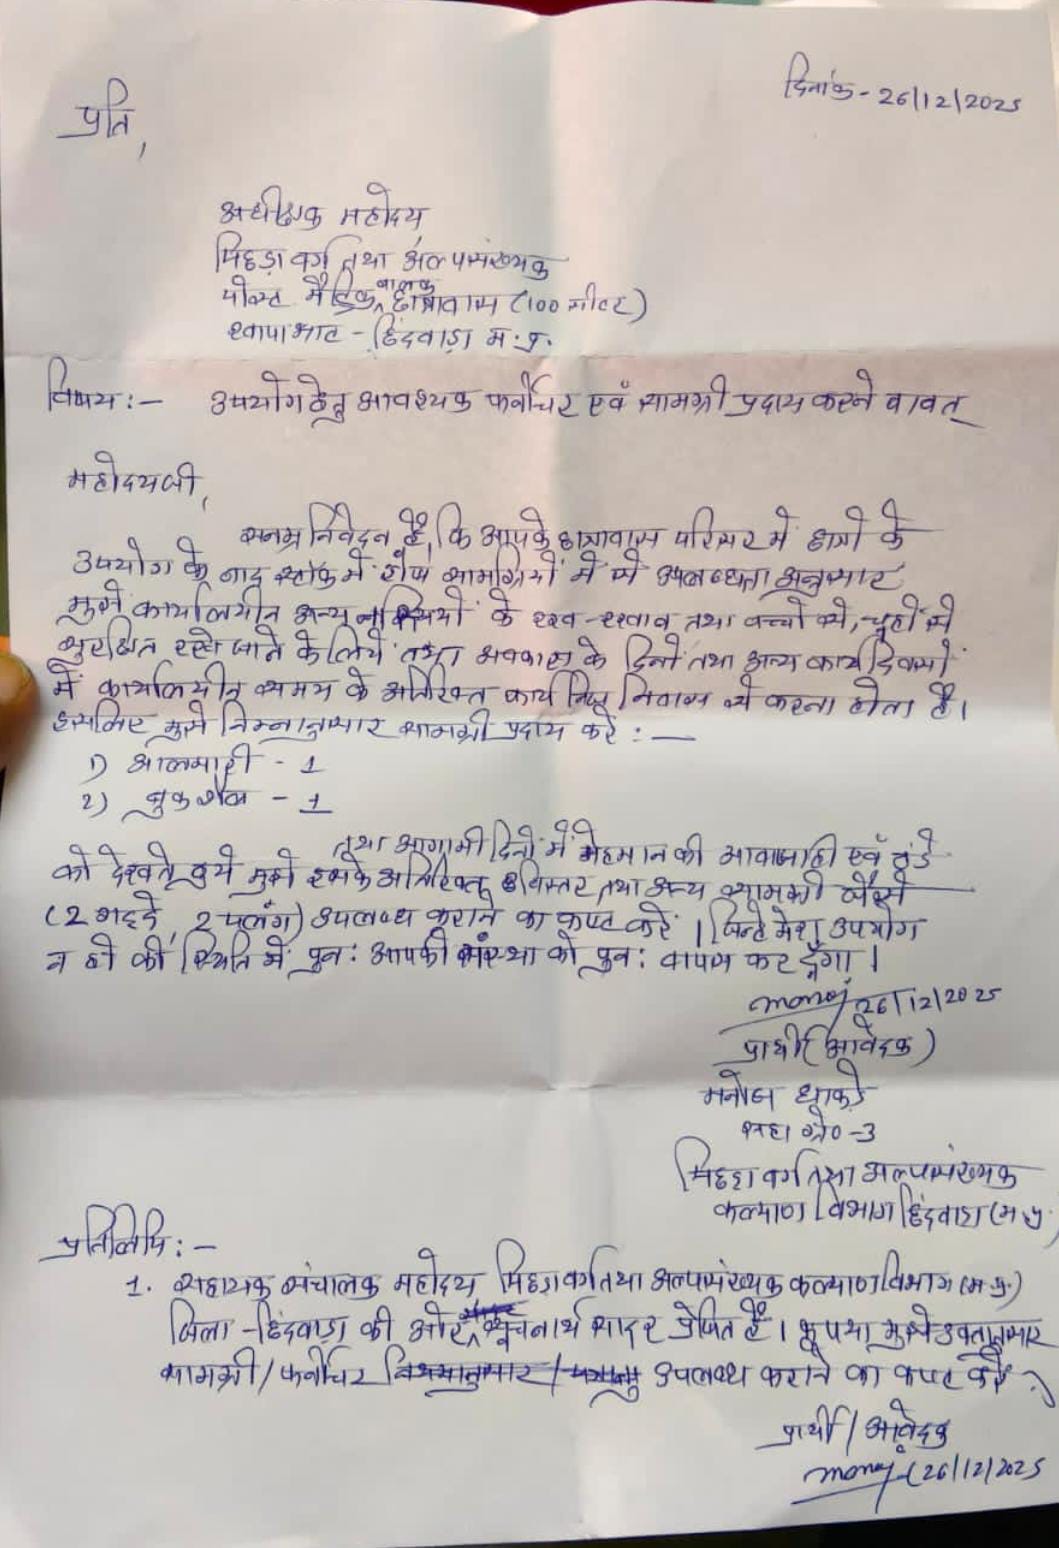 दिनांक - 26/12/2025
प्रति,
अधीक्षक महोदय
पिछड़ा वर्ग तथा अल्पसंख्यक
पोस्ट मैट्रिक बालक छात्रावास (100 सीटर)
खापाभाट - छिंदवाड़ा म.प्र.
विषय :- उपयोग हेतु आवश्यक फर्नीचर एवं सामग्री प्रदाय करने वावत्
महोदयजी,
सनम्र निवेदन है, कि आपके छात्रावास परिसर में छात्रों के
उपयोग के बाद स्टॉक में शेष सामग्रियों में से उपलब्धता अनुसार
मुझे कार्यालयीन अन्य नस्तियों के रख-रखाव तथा बच्चो से, चूहों से
सुरक्षित रखे जाने के लिये तथा अवकाश के दिनों तथा अन्य कार्य दिवसों
में कार्यालयीन समय के अतिरिक्त कार्य निज निवास से करना होता है।
इसलिए मुझे निम्नानुसार सामग्री प्रदाय करें :-
1) आलमारी - 1
2) बुक शेल्फ - 1
तथा आगामी दिनों में मेहमान की आवाजाही एवं ठंडे
को देखते हुये मुझे इसके अतिरिक्त बिस्तर तथा अन्य सामग्री जैसे
(2 गद्दे, 2 पलंग) उपलब्ध कराने का कष्ट करें। जिन्हे मेरा उपयोग
न हो की स्थिति में पुनः आपकी संस्था को पुनः वापस कर दूँगा।
Manoj 26/12/2025
प्रार्थी (आवेदक)
मनोज धाकड़े
सहा ग्रे० - 3
पिछड़ा वर्ग तथा अल्पसंख्यक
कल्याण विभाग छिंदवाड़ा (म.प्र.)
प्रतिलिपि :-
1. सहायक संचालक महोदय पिछड़ा वर्ग तथा अल्पसंख्यक कल्याण विभाग (म.प्र.)
जिला - छिंदवाड़ा की ओर सूचनार्थ सादर प्रेषित है। कृपया मुझे उक्तानुसार
सामग्री / फर्नीचर उपलब्ध कराने का कष्ट करें।
प्रार्थी / आवेदक
Manoj (26/12/2025